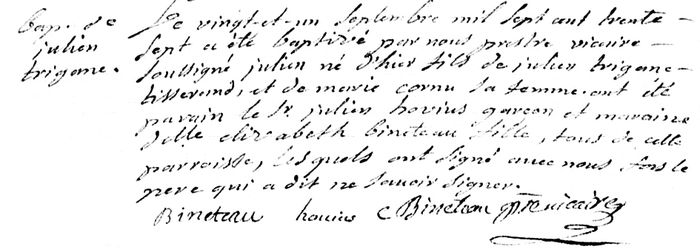 bap. de
julien
trigane.
Le vingt-et-un septembre mil sept cent trente-
sept a été baptizé par nous prestre vicaire
soussigné julien né d'hier fils de julien trigane
tisserand, et de marie cornu sa femme. ont été
parain le Sr. julien hovius garçon et maraine
delle elizabeth bineteau fille, tous de cette
parroisse, lesquels ont signé avec nous fors le
pere qui a dit ne savoir signer.
Bineteau hovius Bineteau vicaire